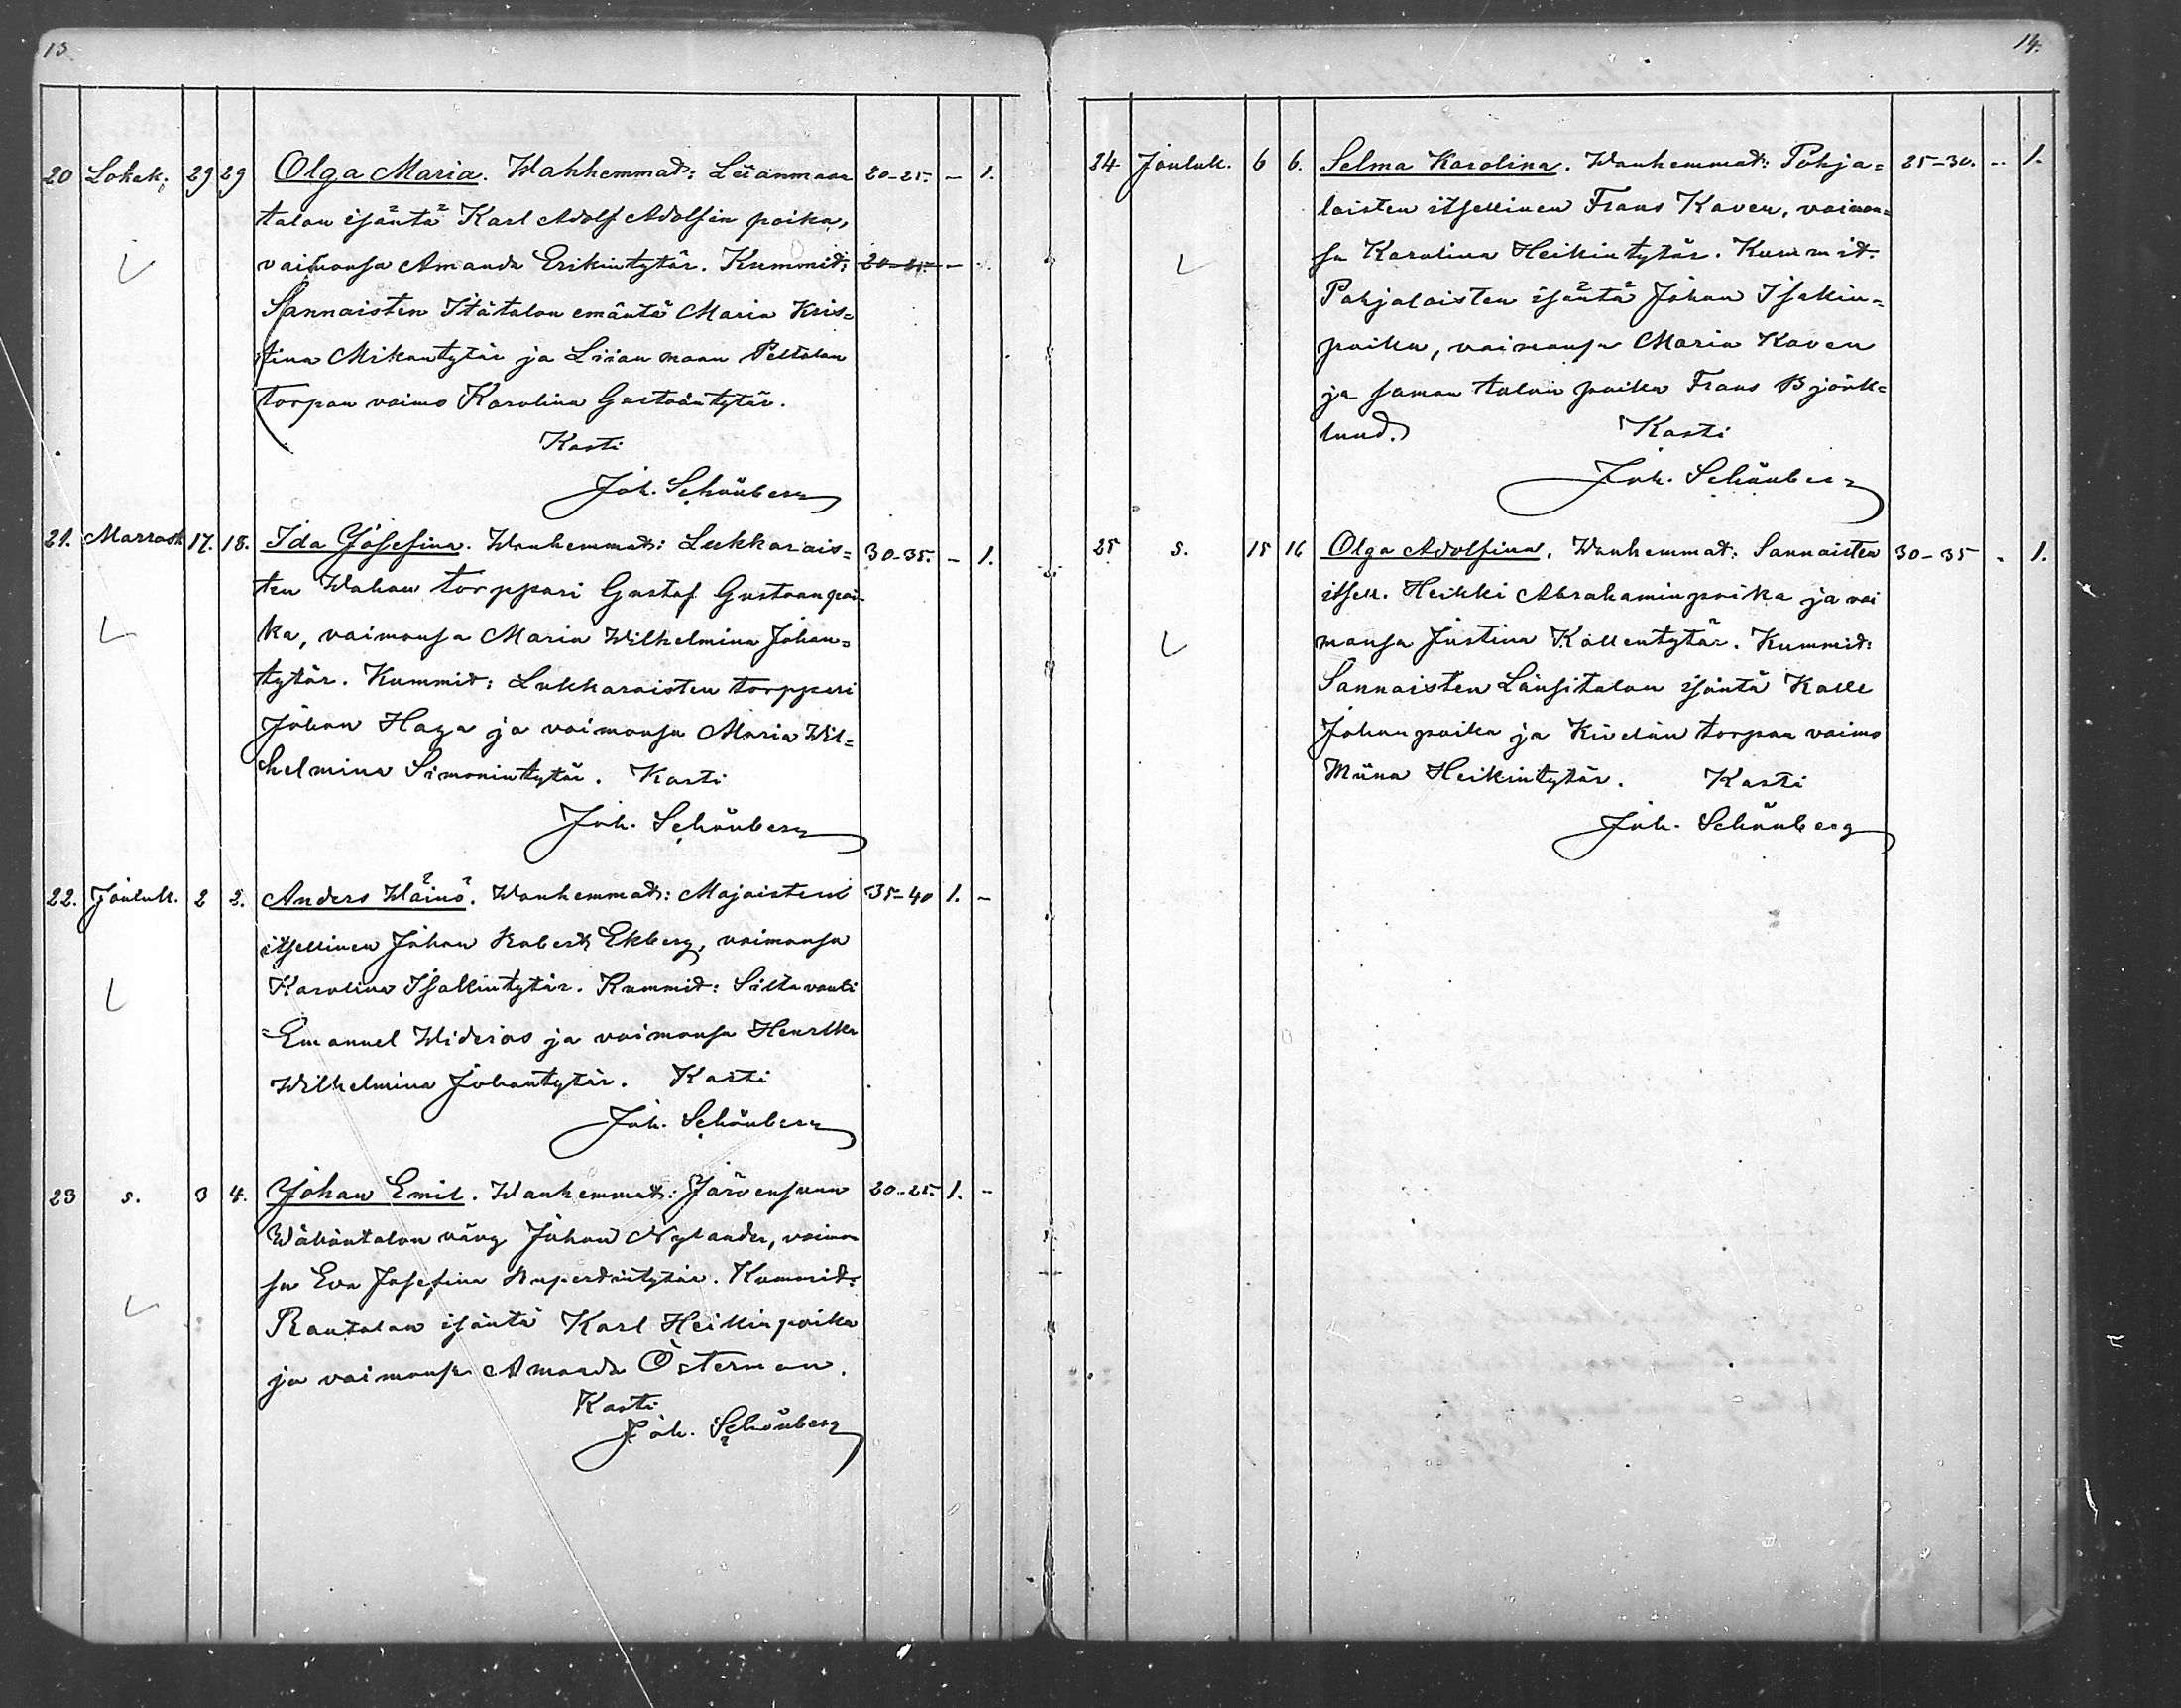 13.
20 Lokak. 29 29 Olga Maria. Wahhemmat: Liianmaan 20-25. - 1.
talon isäntä Karl Adolf Adolfin poika,
vaimonsa Amanda Erikintytär. Kummit: 20-25 -
Sannaisten Itätalon emäntä Maria Kris=
tina Mikantytär ja Liian maan Peltolan
torpan vaimo Karolina Gustaantytär.
Kasti
Joh. Schönberg
21. Marrask 17. 18. Ida Josefina. Wanhemmat: Lukkarais= 30-35. - 1.
ten Wahan torppari Gustaf Gustaanpoi-
ka, vaimonsa Maria Wilhelmina Johan=
tytär. Kummit: Lukkaraisten torppari
Johan Haga ja vaimonsa Maria Wil=
helmina Simonintytär. Kasti
Joh. Schönberg
22. Jouluk. 2 2. Anders Wäinö. Wanhemmat: Majaisten 35-40 1. -
itsellinen Johan Robert Ekberg, vaimonsa
Karolina Isakintytär. Kummit: Siltavouti
Emanuel Widerös ja vaimonsa Henrika
Wilhelmina Johantytär. Kasti
Joh. Schönberg
23 s. 3 4. Johan Emil. Wanhemmat: Järvensuun 20-25. 1. -
Wähäntalon väng Johan Nylander, vaimon
sa Eva Josefina Ruperdintytär. Kummit:
Rautalan isäntä Karl Heikinpoika
ja vaimonsa Amanda Österman.
Kasti
Joh. Schönberg
14.
24 Jouluk. 6 6. Selma Karolina. Wanhemmat: Pohja= 25-30. - 1.
laisten itsellinen Frans Kaven, vaimon=
sa Karolina Heikintytär. Kummit.
Pohjalaisten isäntä Johan Isakin=
poika, vaimonsa Maria Kaven
ja saman talon poika Frans Björk=
lund. Kasti
Joh. Schönberg
25 s. 15 16 Olga Adolfina. Wanhemmat: Sannaisten 30-35 - 1.
itsell. Heikki Abrahaminpoika ja vai
monsa Justina Kallentytär. Kummit:
Sannaisten Länsitalon isäntä Kalle
Johanpoika ja Kivelän torpan vaimo
Miina Heikintytär. Kasti
Joh. Schönberg